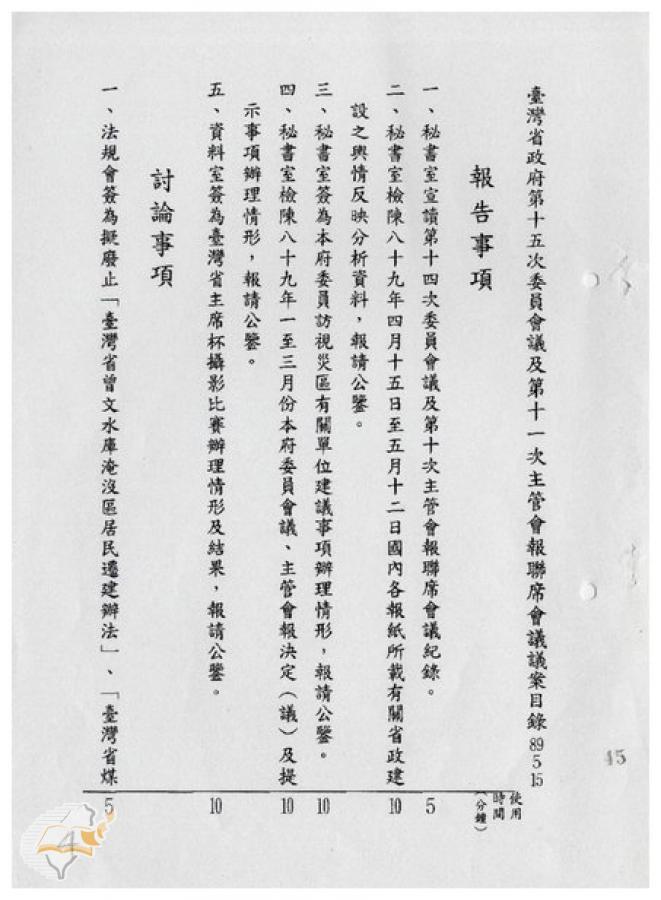 臺灣省政府第十五次委員會議及第十一次主管會報聯席會議議案目錄 89 5 15
使用時間(分鐘)
報告事項
一、秘書室宣讀第十四次委員會議及第十次主管會報聯席會議紀錄。 5
二、秘書室檢陳八十九年四月十五日至五月十二日國內各報紙所載有關省政建 10
設之輿情反映分析資料，報請公鑒。
三、秘書室簽為本府委員訪視災區有關單位建議事項辦理情形，報請公鑒。 10
四、秘書室檢陳八十九年一至三月份本府委員會議、主管會報決定(議)及提 10
示事項辦理情形，報請公鑒。
五、資料室簽為臺灣省主席杯攝影比賽辦理情形及結果，報請公鑒。 10
討論事項
一、法規會簽為擬廢止「臺灣省曾文水庫淹沒區居民遷建辦法」、「臺灣省煤 5
15
4